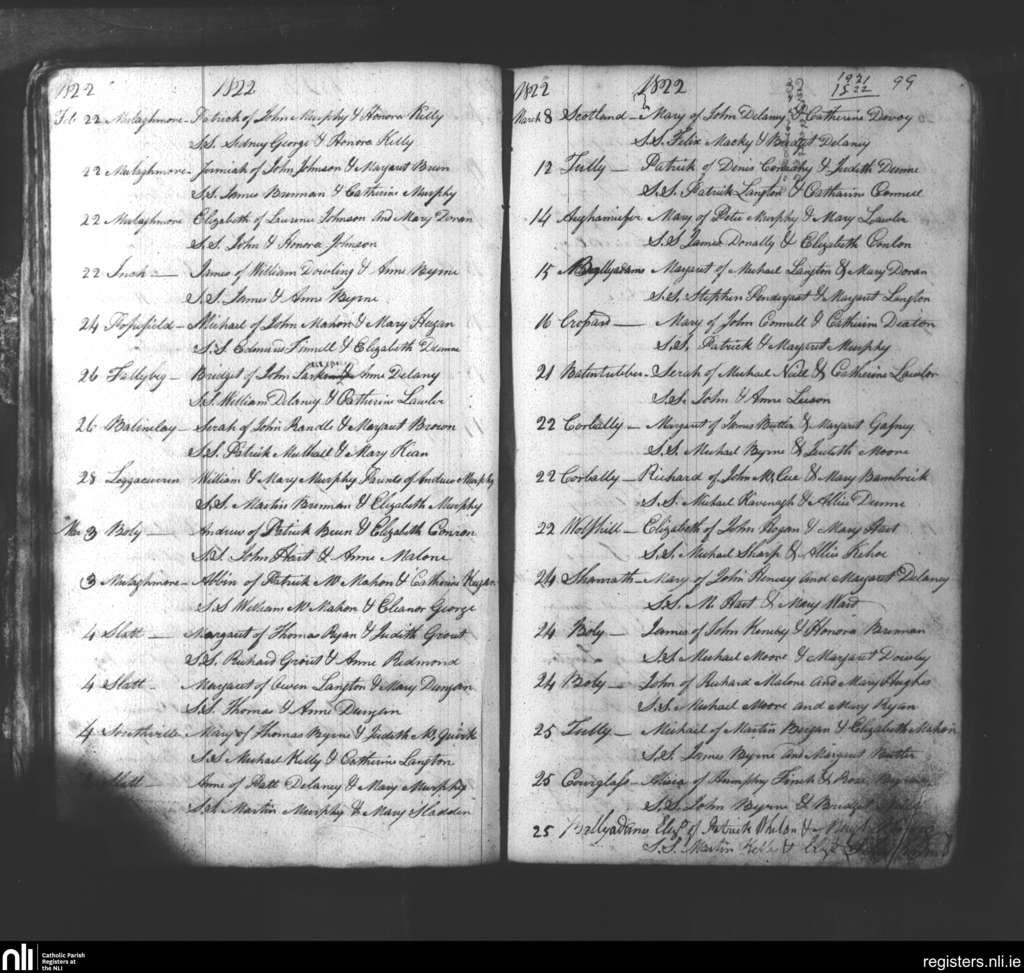 1822 1822
Feb 22 Mulaghmore - Patrick of John Murphy & Honora Kelly
S.S. Sidney George & Honora Kelly
22 Mulaghmore - Jerimiah of John Johnson & Margaret Breen
S.S. James Brennan & Catherine Murphy
22 Mulaghmore Elizabeth of Laurence Johnson and Mary Doran
S.S. John & Honora Johnson
22 Inch - James of William Dowling & Anne Byrne
S.S. James & Anne Byrne
24 Fossyfield - Michael of John Mahon & Mary Hagan
S.S. Edmund Finnell & Elizabeth Dunne
26 Fallybeg - Bridget of John & Anne Delany
S.S. William Delaney & Catherine Lawler
26 Balinclay - Sarah of John Randle & Margaret Brown
S.S. Patrick Mulhall & Mary Kean
28 Loggacurren William & Mary Murphy Parents of Andrew Murphy
S.S. Martin Brennan & Elizabeth Murphy
Mar 3 Boly - Andrew of Patrick Breen & Elizabeth Conron
S.S. John Hart & Anne Malone
3 Mulaghmore - Albin of Patrick McMahon & Catherine Hagan
S.S. William McMahon & Eleanor George
4 Slatt - Margaret of Thomas Ryan & Judith Grout
S.S. Richard Grout & Anne Redmond
4 Slatt - Margaret of Owen Langton & Mary Dungan
S.S. Thomas & Anne Dungan
4 Southville Mary of Thomas Byrne & Judith McQuirk
S.S. Michael Kelly & Catherine Langton
Slatt - Anne of Patt Delaney & Mary Murphy
S.S. Martin Murphy & Mary Sladden
1822 1822 1821 99
1822
March 8 Scotland - Mary of John Delany & Catherine Devoy
S.S. Felix Macky & Bridget Delaney
12 Tully - Patrick of Denis & Judith Dunne
S.S. Patrick Langton & Catharine Connell
14 Aughanisfer Mary of Peter Murphy & Mary Lawler
S.S. James Donally & Elizabeth Conlon
15 Ballyadams Margaret of Michael Langton & Mary Doran
S.S. Stephen Pendergast & Margaret Langton
16 Cropard - Mary of John Connell & Catherine Deaton
S.S. Patrick & Margaret Murphy
21 Batentubber - Serah of Michael Neill & Catherine Lawlor
S.S. John & Anne Leeson
22 Corbally - Margaret of James Butler & Margaret Gafney
S.S. Michael Byrne & Judith Moore
22 Corbally - Richard of John McCue & Mary Bambrick
S.S. Michael Kavenagh & Allice Dunne
22 Wolfhill - Elizabeth of John Hogan & Mary Hart
S.S. Michael Sharp & Allis Kehoe
24 Shanrath - Mary of John Hencey and Margaret Delaney
S.S. M. Hart & Mary Ward
24 Boly - James of John & Honora Brennan
S.S. Michael Moore & Margaret Dowley
24 Boly - John of Richard Malone and Mary Hughes
S.S. Michael Moore and Mary Ryan
25 Tully - Michael of Martin Bergan & Elizabeth Mahon
S.S. James Byrne and Margaret Butler
25 Courglass - Alicia of Humphy Finch & Rose
S.S. John Byrne & Bridget
25 Ballyadams Elizth of Patrick Whelan &
S.S. Martin Kelly &
nli Catholic Parish
Registers at
the NLI
registers.nli.ie